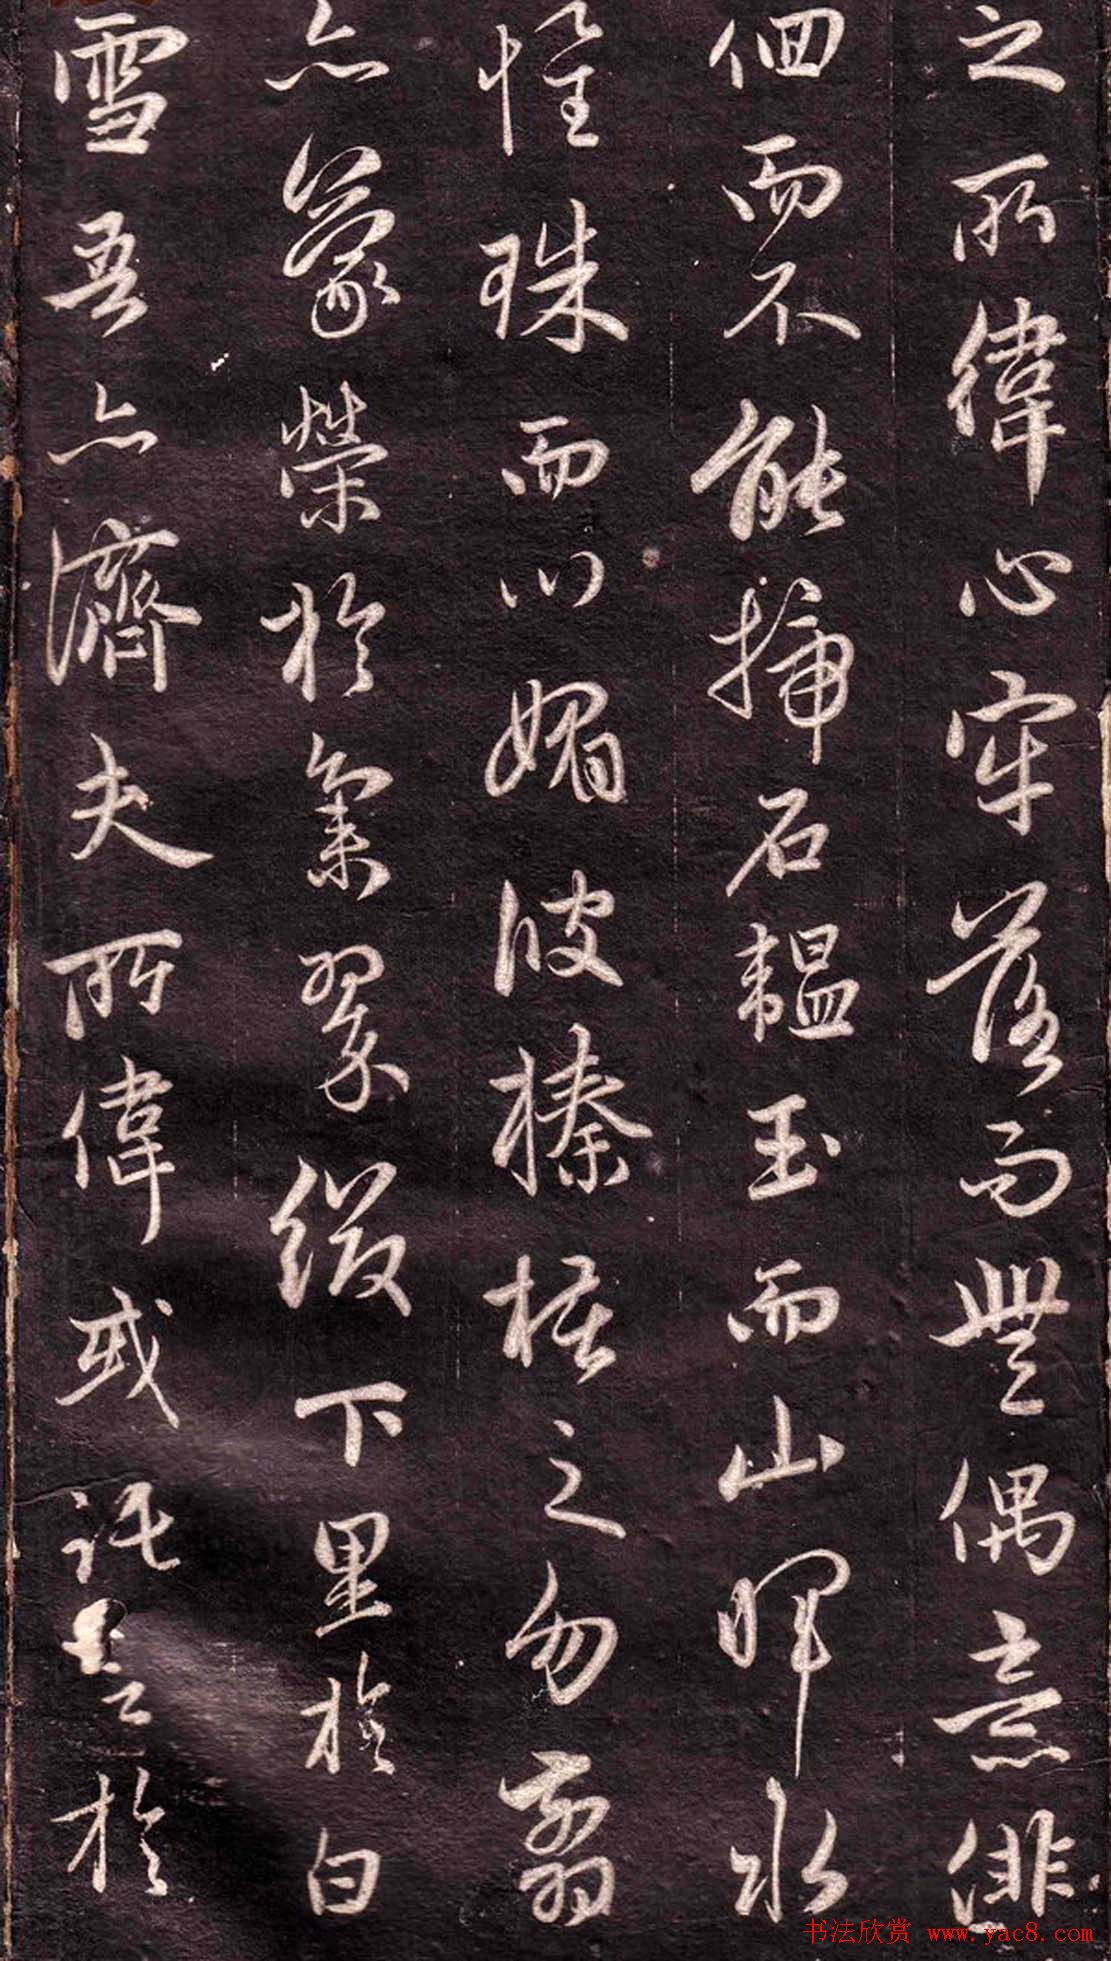 之所緯心牢落而無偶意俳
佪而不能揥石韞玉而山暉水
懷珠而川媚彼榛楛之勿翦
亦蒙榮於集翠綴下里於白
雪吾亦濟夫所偉或託言於
书法欣赏 www.yac8.com